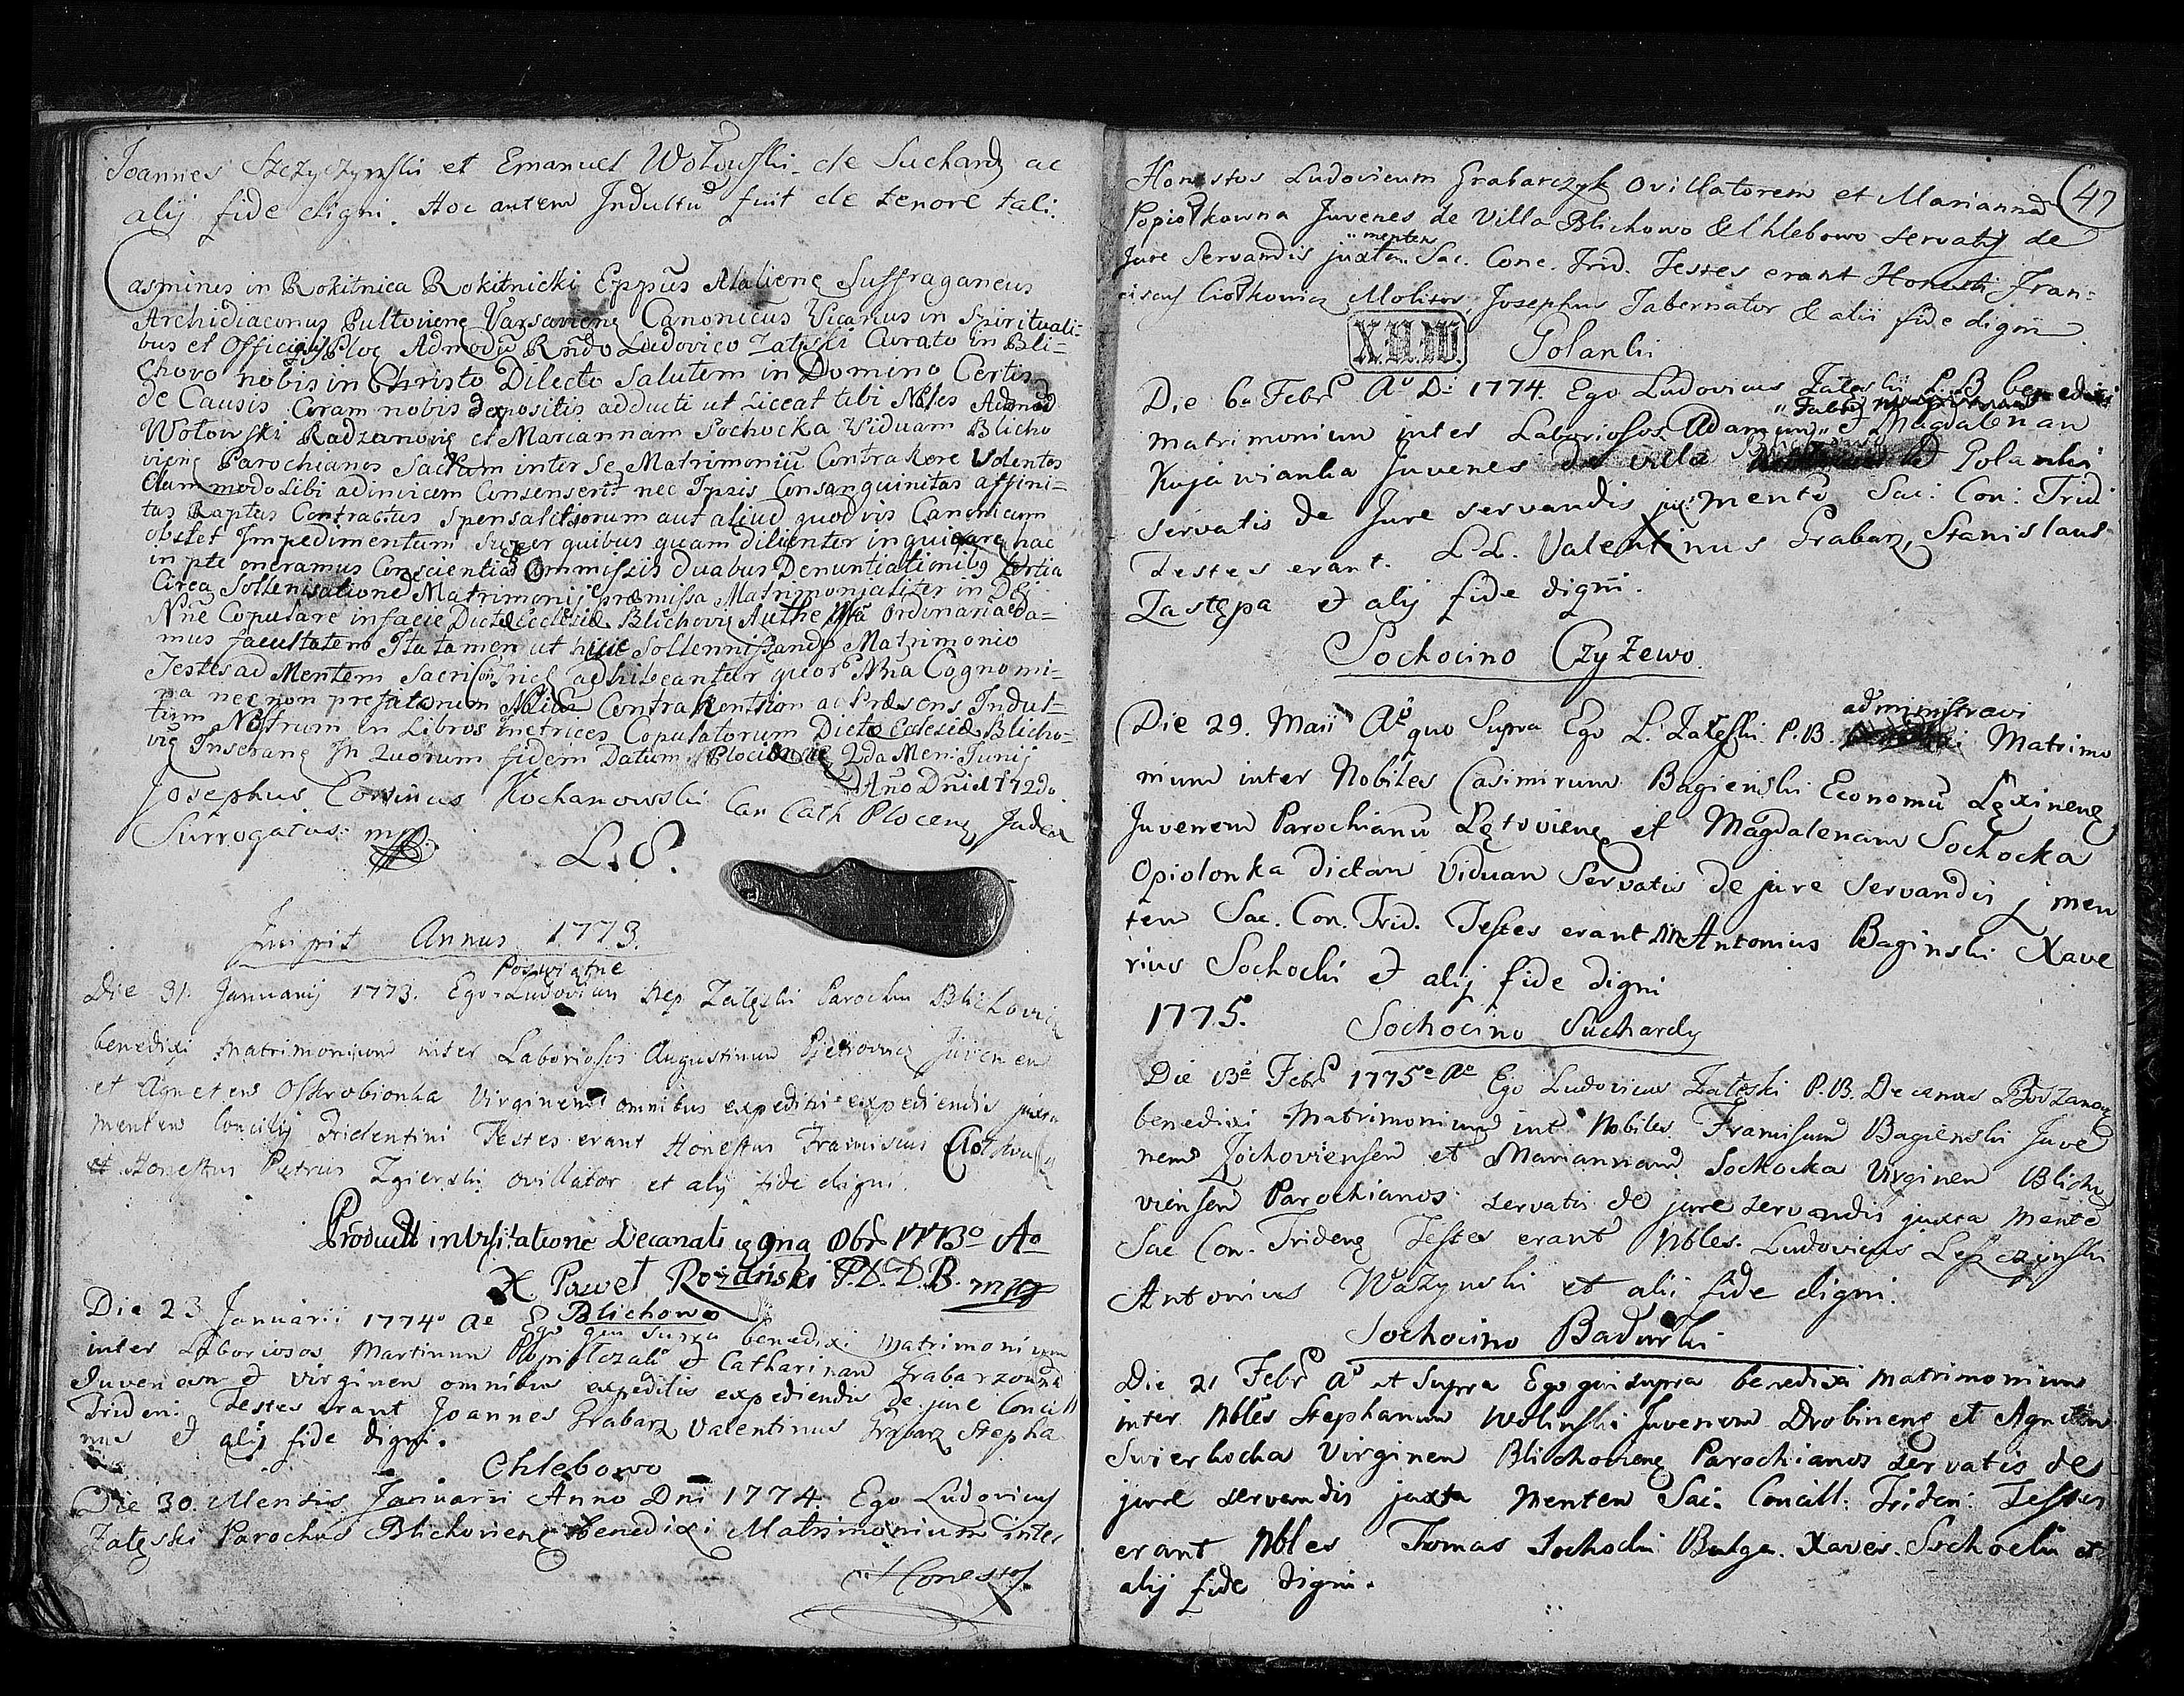 Joannes Szczyczynski et Emanuel Wołowski de Suchardy ac
alij fide digni. Hoc autem Indultu fuit de tenore tali.
Casimirus in Rokitnica Rokitnicki Eppus Suffraganeus
Archidiaconus Pultoviens Varsaviens Canonicus Vicarius in Spirituali=
bus et Officialis Ploc Admodu Rndo Ludovico Załęski Curato in Bli=
chovo nobis in Christo Dilecto Salutem in Domino Certis
de Causis Coram nobis depositis adducti ut Liceat tibi Nbles
Wołowski Radzanovie et Mariannam Sochocka Viduam Blicho
viens Parochianos Sactum inter Se Matrimoniu Contrahere Volentes
Dummodo Sibi adinvicem Consenserit nec Ipsis Consanguinitas affini=
tas Raptus Contractus Sponsalitiorum aut aliud quodvis Canonicum
obstet Impedimentum Super quibus quam diligenter inquirere hac
in pte oneramus Conscientia Ommissis duabus Denuntiationibq tertia
Circa Sollenisatione Matrimonij præmissa Matrimonialiter in Dei
Nne Copulare in facie Dictæ Ecclesiæ Blichovis Authe Nra Ordinaria da=
mus facultatem Ita tamen ut huic Sollennissando Matrimonio
Testes ad Mentem Sacri Con Trid adhibeantur quor Nna Cognomi=
na necnon prefatorum Nbliu Contrahention ac Præsens Indul=
tum Nostrum in Libros Metrices Copulatorum Dictæ Ecclesiæ Blicho=
vie Inserans In Quorum fidem Datum Plociæ Die 2da Mens: Junij
Ano Dni 1772do.
Josephus Corvinus Kochanowski Can Cath Plocens Judex
Surrogatus: mpp
L.S.
Incipit Annus 1773.
Poswiatne
Die 31. Januarij 1773. Ego Ludovicus Nep Załęski Parochus Blichovie
benedixi matrimonium inter Laboriosos Augustinum Pietrowicz Juvenem
et Agnetem Oskrobionka Virginem omnibus expeditis expediendis juxta
mentem Concilij Tridentini Testes erant Honestus Franciscus
et Honestus Petrus Zgierski ovillator et alij fide digni.
Product in visitatione Decanali 9na Obr 1773o Ao
X Paweł Rozanski P.D.D.B. mpp
Blichowo
Die 23 Januarii 1774o Ao Ego qui supra benedixi matrimonium
inter Laboriosos Martinum et Catharinam Grabarzowna
Juvenem et Virginem omnibus expeditis expediendis de jure Concill
Triden: Testes erant Joannes Grabarz Valentinus Grabarz Stepha
nus et alij fide digni.
Chlebowo
Die 30. Mensis Januarii Anno Dni 1774. Ego Ludovicus
Załęski Parochus Blichoviens benedixi Matrimonium inter
Honestos
47
Honestos Ludovicum Grabarczyk Ovillatorem et Marianna
Popiołkowna Juvenes de Villa Blichowo & Chlebowo servatis de
"mentem
Jure Servandis juxta Sac. Conc. Trid. Testes erant Honesti Fran=
ciscus Ciołkowicz Molitor Josephus Tabernator & alii fide digni
X.H.W. Golanki
Die 6a Febr Ao D: 1774. Ego Ludovicus Załęski P.B. benedixi
matrimonium inter Laboriosos Adamum et Magdalenam
Kujawianka Juvenes de villa Golanki
servatis de Jure servandis jux: mente Sac: Con: Trid:
Testes erant. L.L. Valentinus Grabarz, Stanislaus
Zastępa et alij fide digni.
Sochocino Czyżewo.
administravi
Die 29. Maii Ao quo Supra Ego L. Załęski P.B. Matrimo
nium inter Nobiles Casimirum Bagienski Economu Lęxinens
Juvenem Parochianu Lętoviens et Magdalenam Sochocka
Opiolonka dictam Viduam Servatis de jure Servandis j men
tem Sac. Con. Trid. Testes erant Antonius Baginski Xave
rius Sochocki et alij fide digni
1775. Sochocino Suchardy
Die 13a Febr 1775o Ao Ego Ludovicus Załęski P.B. Decanus Bodzanov
benedixi Matrimonium int Nobiles Franciscum Bagienski Juve
nem Zochoviensem et Mariannam Sochocka Virginem Blicho
viensem Parochianos servatis de jure servandis juxta mente
Sac Con. Tridens Testes erant Nbles. Ludovicus Leszczynski
Antonius Ważynski et alii fide digni.
Sochocino Badurki
Die 21 Febr Ao ut Supra Ego qui supra benedixi matrimonium
inter Nbles Stephanum Wolinski Juvenem Drobinens et Agnetem
Swierkocka Virginem Blichoviens Parochianos Servatis de
jure servandis juxta mentem Sac. Concill: Triden: Testes
erant Nbles Thomas Sochocki Xaver. Sochocki et
alij fide digni.